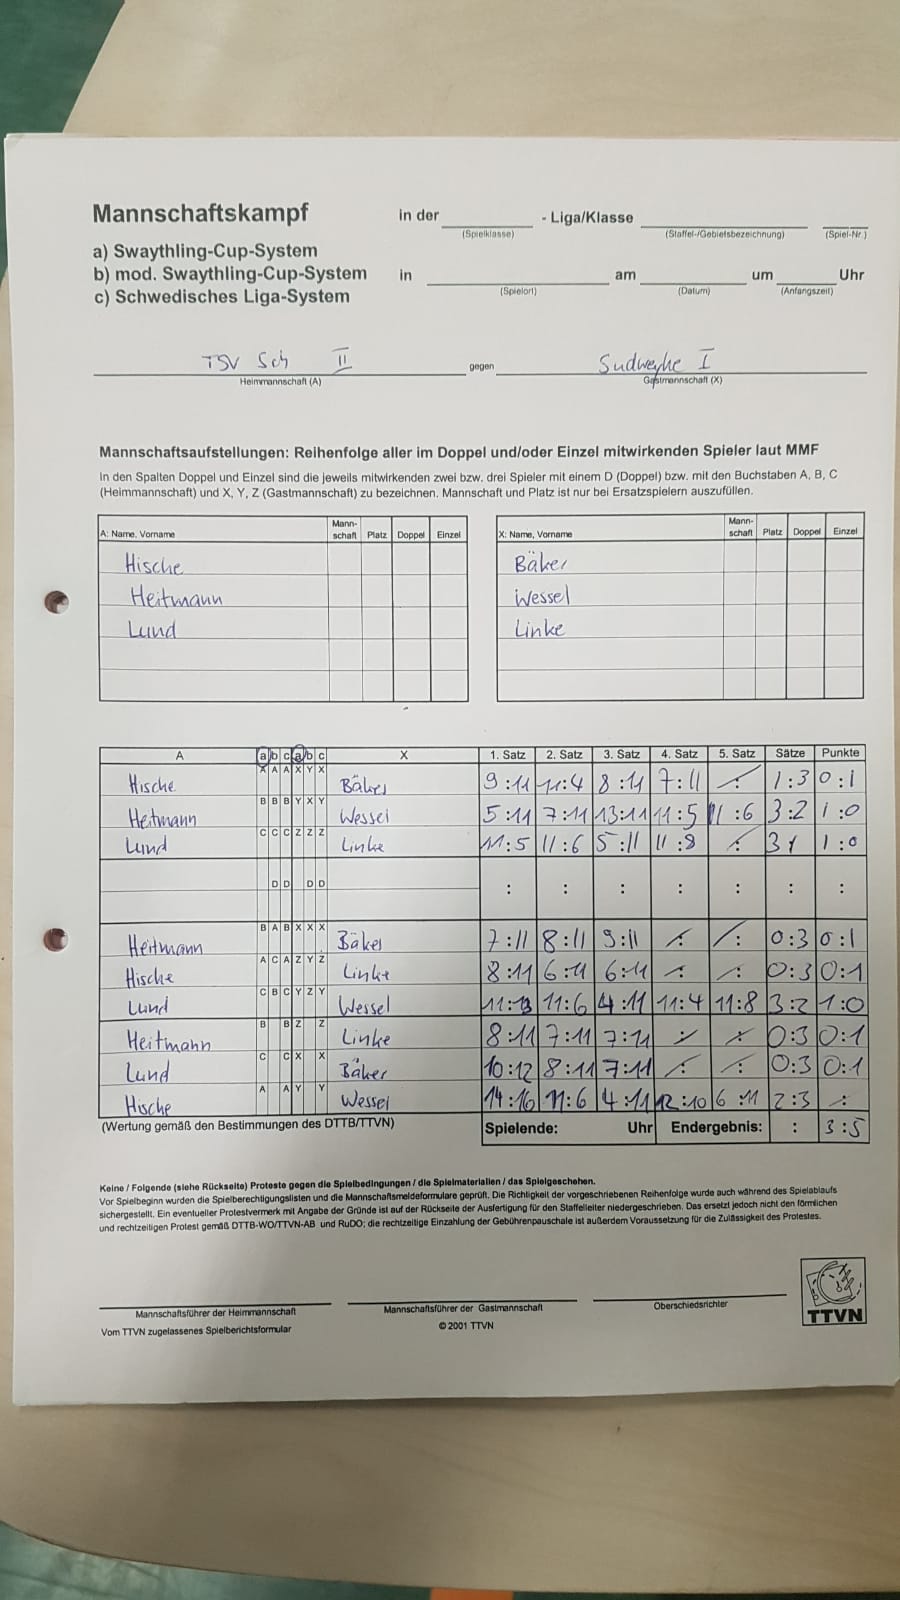 Mannschaftskampf in der - Liga/Klasse
(Spielklasse) (Staffel-/Gebietsbezeichnung) (Spiel-Nr.)
a) Swaythling-Cup-System
b) mod. Swaythling-Cup-System in am um Uhr
c) Schwedisches Liga-System (Spielort) (Datum) (Anfangszeit)
TSV Sch II gegen Sudweyhe I
Heimmannschaft (A) Gastmannschaft (X)
Mannschaftsaufstellungen: Reihenfolge aller im Doppel und/oder Einzel mitwirkenden Spieler laut MMF
In den Spalten Doppel und Einzel sind die jeweils mitwirkenden zwei bzw. drei Spieler mit einem D (Doppel) bzw. mit den Buchstaben A, B, C
(Heimmannschaft) und X, Y, Z (Gastmannschaft) zu bezeichnen. Mannschaft und Platz ist nur bei Ersatzspielern auszufüllen.
A: Name, Vorname Mann-schaft Platz Doppel Einzel X: Name, Vorname Mann-schaft Platz Doppel Einzel
Hische Bäker
Heitmann Wessel
Lund Linke
A a b c a b c X 1. Satz 2. Satz 3. Satz 4. Satz 5. Satz Sätze Punkte
Hische A A A X Y X Bäker 9:11 11:4 8:11 7:11 : 1:3 0:1
Heitmann B B B Y X Y Wessel 5:11 7:11 13:11 11:5 11:6 3:2 1:0
Lund C C C Z Z Z Linke 11:5 11:6 5:11 11:8 : 3 1 1:0
D D D D : : : : : : :
Heitmann B A B X X X Bäker 7:11 8:11 9:11 : : 0:3 0:1
Hische A C A Z Y Z Linke 8:11 6:11 6:11 : : 0:3 0:1
Lund C B C Y Z Y Wessel 11:13 11:6 4:11 11:4 11:8 3:2 1:0
Heitmann B B Z Z Linke 8:11 7:11 7:11 : : 0:3 0:1
Lund C C X X Bäker 10:12 8:11 7:11 : : 0:3 0:1
Hische A A Y Y Wessel 14:16 11:6 4:11 12:10 6:11 2:3 :
(Wertung gemäß den Bestimmungen des DTTB/TTVN) Spielende: Uhr Endergebnis: : 3:5
Keine / Folgende (siehe Rückseite) Proteste gegen die Spielbedingungen / die Spielmaterialien / das Spielgeschehen.
Vor Spielbeginn wurden die Spielberechtigungslisten und die Mannschaftsmeldeformulare geprüft. Die Richtigkeit der vorgeschriebenen Reihenfolge wurde auch während des Spielablaufs
sichergestellt. Ein eventueller Protestvermerk mit Angabe der Gründe ist auf der Rückseite der Ausfertigung für den Staffelleiter niedergeschrieben. Das ersetzt jedoch nicht den förmlichen
und rechtzeitigen Protest gemäß DTTB-WO/TTVN-AB und RuDO; die rechtzeitige Einzahlung der Gebührenpauschale ist außerdem Voraussetzung für die Zulässigkeit des Protestes.
Mannschaftsführer der Heimmannschaft Mannschaftsführer der Gastmannschaft Oberschiedsrichter
Vom TTVN zugelassenes Spielberichtsformular © 2001 TTVN TTVN